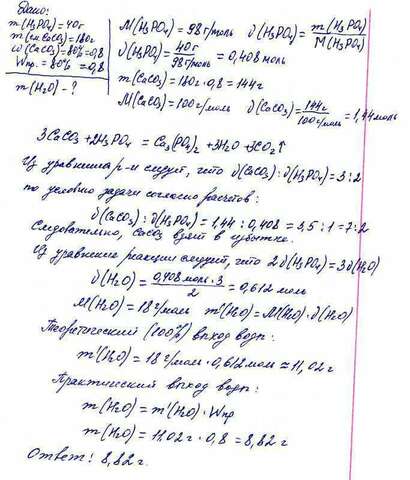 Дано:
m(H₃PO₄)=40г
m(см CaCO₃)=180г
ω(CaCO₃)=80%=0,8
Wпр.=80%=0,8
m(H₂O)-?
M(H₃PO₄)=98г/моль ν(H₃PO₄)=m(H₃PO₄)/M(H₃PO₄)
ν(H₃PO₄)=40г/98г/моль=0,408 моль
m(CaCO₃)=180г·0,8=144г
M(CaCO₃)=100г/моль ν(CaCO₃)=144г/100г/моль=1,44моль
3CaCO₃+2H₃PO₄=Ca₃(PO₄)₂+3H₂O+3CO₂↑
Из уравнения р-и следует, что ν(CaCO₃):ν(H₃PO₄)=3:2
по условию задачи согласно расчетов:
ν(CaCO₃):ν(H₃PO₄)=1,44:0,408=3,5:1=7:2
Следовательно, CaCO₃ взят в избытке.
Из уравнение реакции следует, что 2ν(H₃PO₄)=3ν(H₂O)
ν(H₂O)=0,408 моль·3/2=0,612 моль
M(H₂O)=18г/моль m'(H₂O)=M(H₂O)·ν(H₂O)
Теоретический (100%) выход воды:
m'(H₂O)=18г/моль·0,612моль≈11,02г
Практический выход воды:
m(H₂O)=m'(H₂O)·Wпр
m(H₂O)=11,02г·0,8=8,82г
Ответ: 8,82г.